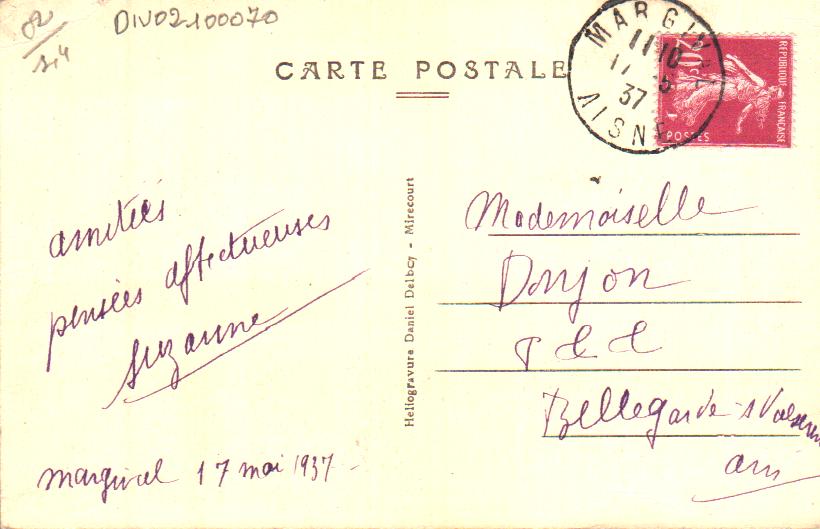 82
2,4
DIV02100070
CARTE POSTALE
MARGIVAL
11 10
17 -5
37
AISNE
REPUBLIQUE FRANCAISE
POSTES
amitiés
pensées affectueuses
Suzanne
margival 17 mai 1937
Heliogravure Daniel Delboy - Mirecourt
Mademoiselle
Donjon
Bellegarde s Valserine
ain